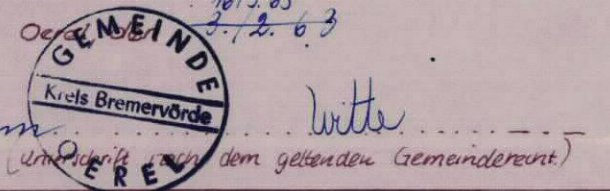 Oerel, den 3./2. 63
GEMEINDE
Kreis Bremervörde
OEREL
Witte
(Unterschrift nach dem geltenden Gemeinderecht)